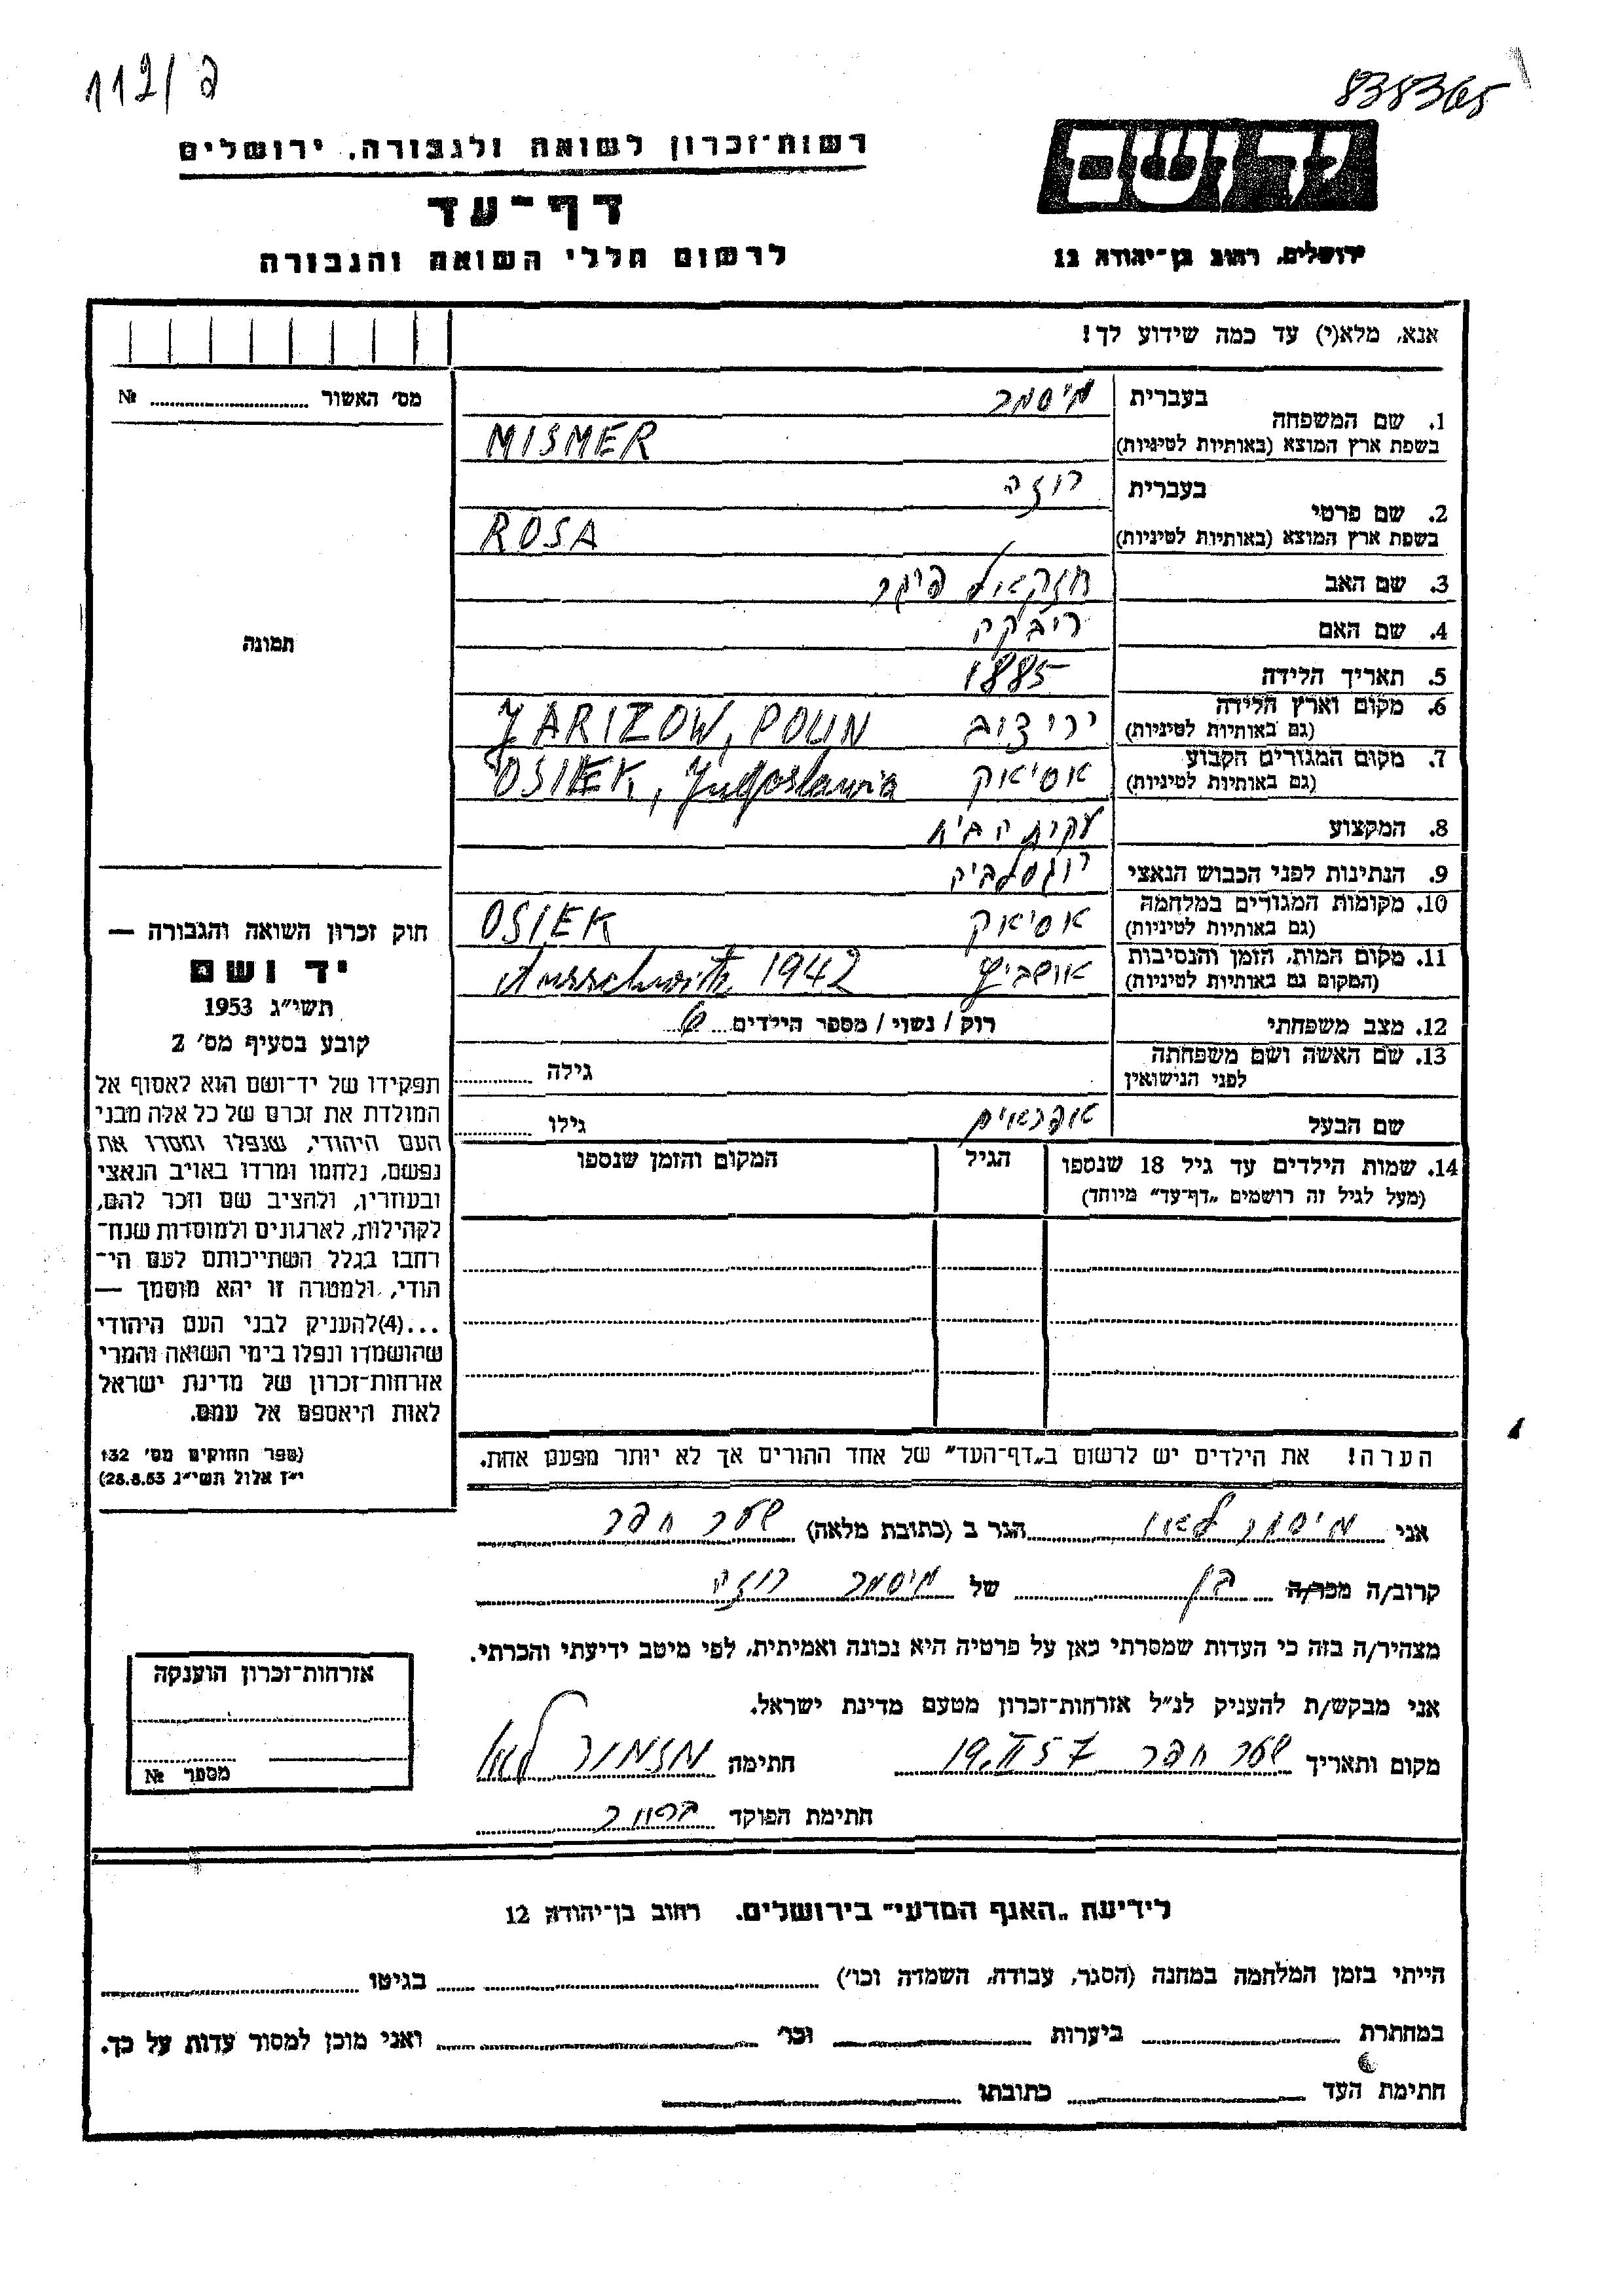 112/ פ
838365
יד ושם
רשות־זכרון לשואה ולגבורה, ירושלים
דף־עד
לרשום חללי השואה והגבורה
ירושלים, רחוב בן־יהודה 12
אנא, מלא(י) עד כמה שידוע לך!
מס' האשור № ........
1. שם המשפחה
בעברית מיסמר
בשפת ארץ המוצא (באותיות לטיניות) MISMER
2. שם פרטי
בעברית רוזה
בשפת ארץ המוצא (באותיות לטיניות) ROSA
3. שם האב חזקאל פיגר
4. שם האם ריבקה
5. תאריך הלידה 1885
6. מקום וארץ הלידה
(גם באותיות לטיניות) יריצוב YARIZOW, POLIN
7. מקום המגורים הקבוע
(גם באותיות לטיניות) אסיאק OSIEK, Yugoslawia
8. המקצוע עקרת הבית
9. הנתינות לפני הכבוש הנאצי יוגסלביה
10. מקומות המגורים במלחמה
(גם באותיות לטיניות) אסיאק OSIEK
11. מקום המות, הזמן והנסיבות
(המקום גם באותיות לטיניות) אושביץ Ausschwitz 1942
12. מצב משפחתי רוק / נשוי / מספר הילדים 6
13. שם האשה ושם משפחתה
לפני הנישואין גילה ........
שם הבעל אפראים גילו ........
14. שמות הילדים עד גיל 18 שנספו
(מעל לגיל זה רושמים „דף־עד" מיוחד)
הגיל
המקום והזמן שנספו
הערה! את הילדים יש לרשום ב„דף־העד" של אחד ההורים אך לא יותר מפעם אחת.
תמונה
חוק זכרון השואה והגבורה —
יד ושם
תשי"ג 1953
קובע בסעיף מס' 2
תפקידו של יד־ושם הוא לאסוף אל
המולדת את זכרם של כל אלה מבני
העם היהודי, שנפלו ומסרו את
נפשם, נלחמו ומרדו באויב הנאצי
ובעוזריו, ולהציב שם וזכר להם,
לקהילות, לארגונים ולמוסדות שנח־
רחבו בגלל השתייכותם לעם הי־
הודי, ולמטרה זו יהא מוסמך —
...(4)להעניק לבני העם היהודי
שהושמדו ונפלו בימי השואה והמרי
אזרחות־זכרון של מדינת ישראל
לאות היאספם אל עמם.
(ספר החוקים מס' 132
י"ז אלול תשי"ג 28.8.53)
אני מיסמר לאון הגר ב (כתובת מלאה) שער חפר
קרוב/ה מכר/ה בן של מיסמר רוזה
מצהיר/ה בזה כי העדות שמסרתי כאן על פרטיה היא נכונה ואמיתית, לפי מיטב ידיעתי והכרתי.
אני מבקש/ת להעניק לנ"ל אזרחות־זכרון מטעם מדינת ישראל.
מקום ותאריך שער חפר 19.II 57 חתימה
חתימת הפוקד
אזרחות־זכרון הוענקה
מספר №
לידיעת „האגף המדעי" בירושלים, רחוב בן־יהודה 12
הייתי בזמן המלחמה במחנה (הסגר, עבודה, השמדה וכו') ........ בגיטו ........
במחתרת ........ ביערות ........ וכו' ........ ואני מוכן למסור עדות על כך.
חתימת העד ........ כתובתו ........